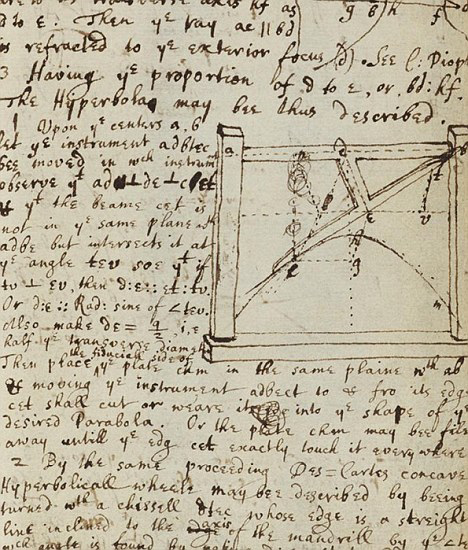 transverse axis hf as
d to e. Then yᵉ ray ac || bd
is refracted to yᵉ exterior focus (d). See C: Diopt
3 Having yᵉ proportion of d to e, or, bd: hf.
The Hyperbola may bee thus described.
1 Upon yᵉ centers a, b
let yᵉ instrument adbtec
bee moved in wᶜʰ instrumᵗ
observe yᵗ ad ⊥ de ⊥ cet
& yᵗ the beame cet is
not in yᵉ same plane wᵗʰ
adbe but intersects it at
yᵉ angle tev soe yᵗ if
tv ⊥ ev, then d:e:: et: tv.
Or d:e :: Rad: sine of <tev.
Also make de = q/2 i.e
Half yᵉ transverse diametʳ
the fiduciall side of
Then place yᵉ plate chm in the same plaine wᵗʰ ab
& moving yᵉ instrument adbect to & fro its edge
cet shall cut or weare it into yᵉ shape of yᵉ
desired Parabola. Or the plate chm may bee filed
away untill yᵉ edg cet exactly touch it every where
2 By the same proceeding Des=Cartes concave
Hyperbolicall wheele may bee described by beeing
turned wᵗʰ a chissell dtec whose edge is a streight
line inclined to the axis of the mandrill by yᵉ <tev
wᶜʰ angle is found by
a
d
b
e
t
v
c
h
g
m
g
h
f